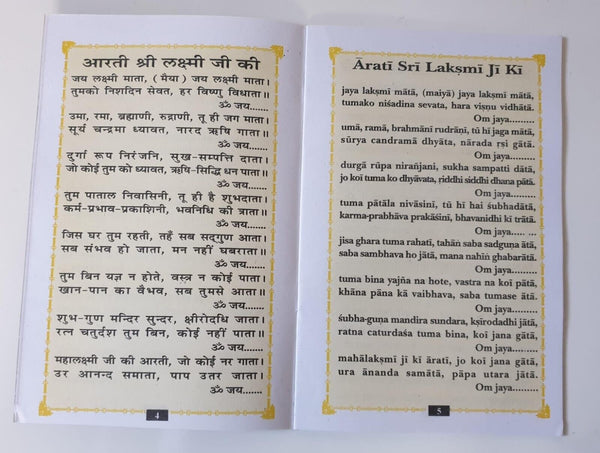 आरती श्री लक्ष्मी जी की
जय लक्ष्मी माता, (मैया) जय लक्ष्मी माता।
तुमको निशदिन सेवत, हर विष्णु विधाता॥
ॐ जय.......
उमा, रमा, ब्रह्माणी, रुद्राणी, तू ही जग माता।
सूर्य चन्द्रमा ध्यावत, नारद ऋषि गाता॥
ॐ जय.......
दुर्गा रूप निरंजनि, सुख-सम्पत्ति दाता।
जो कोई तुम को ध्यावत, ऋषि-सिद्धि धन पाता॥
ॐ जय.......
तुम पाताल निवासिनी, तू ही है शुभदाता।
कर्म-प्रभाव-प्रकाशिनी, भवनिधि की त्राता॥
ॐ जय.......
जिस घर तुम रहती, तहँ सब सद्गुण आता।
सब संभव हो जाता, मन नहीं घबराता॥
ॐ जय.......
तुम बिन यज्ञ न होते, वस्त्र न कोई पाता।
खान-पान का वैभव, सब तुमसे आता॥
ॐ जय.......
शुभ-गुण मन्दिर सुन्दर, क्षीरोदधि जाता।
रत्न चतुर्दश तुम बिन, कोई नहीं पाता॥
ॐ जय.......
महालक्ष्मी जी की आरती, जो कोई नर गाता।
उर आनन्द समाता, पाप उतर जाता।
ॐ जय.......
4
Āratī Srī Lakṣmī Jī Kī
jaya lakṣmī mātā, (maiyā) jaya lakṣmī mātā,
tumako niśadina sevata, hara viṣṇu vidhātā.
Om jaya.........
umā, ramā, brahmāni rudrāni, tū hī jaga mātā,
sūrya candramā dhyāta, nārada ṛṣi gātā.
Om jaya.........
durgā rūpa nirañjani, sukha sampatti dātā,
jo koī tuma ko dhyāvata, ṛiddhi siddhi dhana pātā.
Om jaya.........
tuma pātāla nivāsinī, tū hī hai śubhadātā,
karma-prabhāva prakāśinī, bhavanidhi kī trātā.
Om jaya..... ...
jisa ghara tuma rahatī, tahān saba sadguṇa ātā,
saba sambhava ho jātā, mana nahiṅ ghabarātā.
Om jaya.........
tuma bina yajña na hote, vastra na koī pātā,
khāna pāna kā vaibhava, saba tumase ātā.
Om jaya.........
śubha-guṇa mandira sundara, kṣīrodadhi jātā,
ratna caturdaśa tuma bina, koī jana gātā,
Om jaya.........
mahālakṣmī jī kī āratī, jo koī jana gātā,
ura ānanda samātā, pāpa utara jātā.
Om jaya.........
5